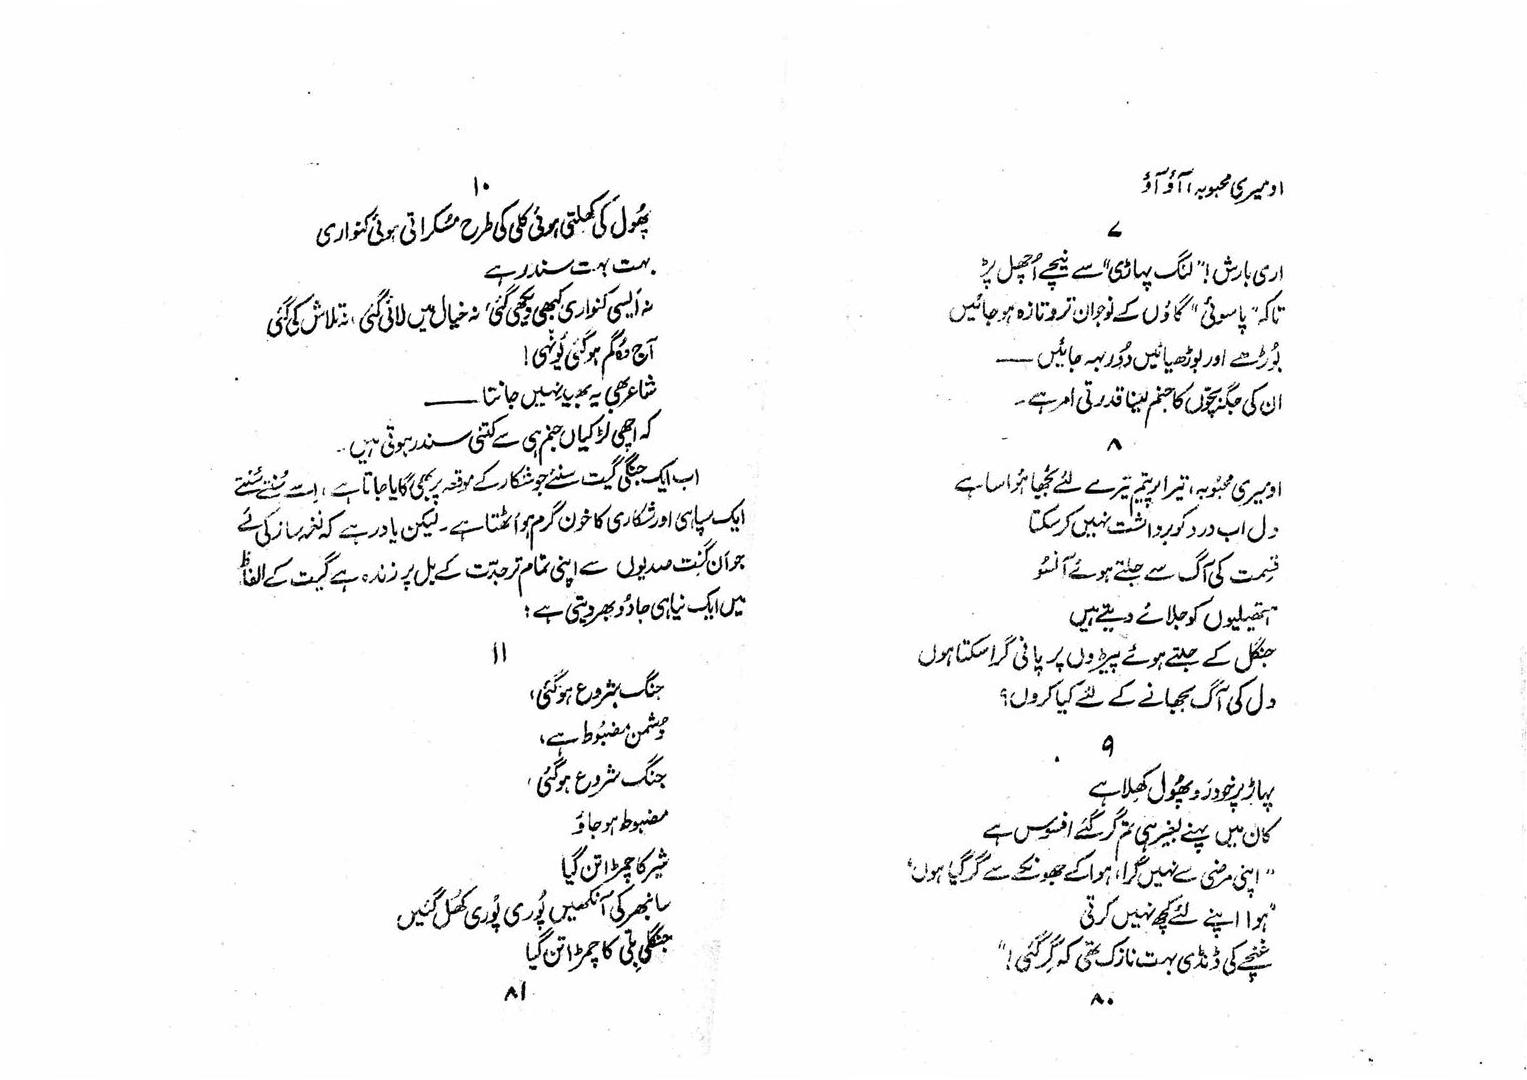 او میری محبوبہ، آؤ آؤ
۷
اری بارش! "لنگ پہاڑی" سے نیچے اُچھل پڑ
تاکہ "پاسوئی" گاؤں کے نوجوان تروتازہ ہو جائیں
بُوڑھے اور بوڑھیائیں دُور بہہ جائیں ——
ان کی جگہ بچّوں کا جنم لینا قدرتی امر ہے۔
۸
او میری محبوبہ، تیرا پریتم تیرے لئے بُجھا ہُوا سا ہے
دل اب درد کو برداشت نہیں کر سکتا
قسمت کی آگ سے جلتے ہوئے آنسُو
ہتھیلیوں کو جلائے دیتے ہیں
جنگل کے جلتے ہوئے پیڑوں پر پانی گرا سکتا ہوں
دل کی آگ بجھانے کے لئے کیا کروں؟
۹
پہاڑ پر خود رَو پھُول کھِلا ہے
کان میں پہنے بغیر ہی تم گر گئے افسوس ہے
"اپنی مرضی سے نہیں گرا، ہوا کے جھونکے سے گر گیا ہوں"
"ہوا اپنے لئے کچھ نہیں کرتی
غنچے کی ڈنڈی بہت نازک تھی کہ گِر گئی!"
۸۰
۱۰
پھُول کی کھلتی ہوئی کلی کی طرح مُسکراتی ہوئی کنواری
بہت بہت سندر ہے
نہ ایسی کنواری کبھی دیکھی گئی، نہ خیال میں لائی گئی، نہ تلاش کی گئی
آج وہ گم ہو گئی یُونہی!
شاعر بھی یہ بھید نہیں جانتا ——
کہ اچھی لڑکیاں جنم ہی سے کتنی سندر ہوتی ہیں۔
اب ایک جنگی گیت سنئے جو شکار کے موقعہ پر بھی گایا جاتا ہے، اِسے سُنتے سُنتے
ایک سپاہی اور شکاری کا خون گرم ہو اُٹھتا ہے۔ لیکن یاد رہے کہ نغمہ ساز کی لَے
جو اَن گِنت صدیوں سے اپنی تمام تر جدّت کے بل پر زندہ ہے گیت کے الفاظ
میں ایک نیا ہی جادُو بھر دیتی ہے؛
۱۱
جنگ شروع ہو گئی،
دُشمن مضبُوط ہے،
جنگ شروع ہو گئی،
مضبوط ہو جاؤ
شیر کا چمڑا تن گیا
سانبھر کی آنکھیں پُوری پُوری کھُل گئیں
جنگلی بِلّی کا چمڑا تن گیا
۸۱